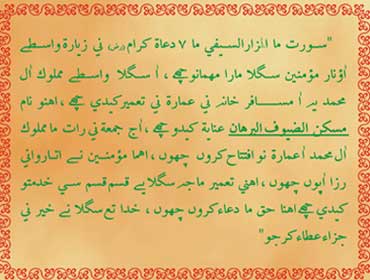 "سورت ما المزار السيفي ما ٧ دعاة كرام (رض) ني زيارة واسطے
اؤنار مؤمنين سگلا مارا مهمانو چھے ، ا سگلا واسطے مملوك اٰل
محمد يه ا مسافر خانه ني عمارة ني تعمير كيدي چھے ، اهنو نام
مسكن الضيوف البرهان عناية كيدو چھے ، اٰج جمعة ني رات ما مملوك
اٰل محمد اعمارة نو افتتاح كروں چھوں ، اهما مؤمنين نے اتارواني
رزا اٰپوں چھوں ، اهني تعمير ما جه سگلا يے قسم قسم سي خدمتو
كيدي چھے اهنا حق ما دعاء كروں چھوں ، خدا تع سگلا نے خير ني
جزاء عطاء كرجو"